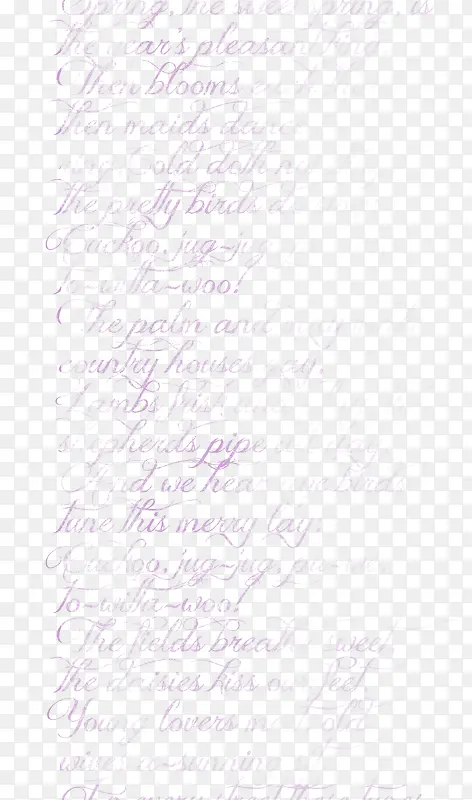 Spring, the sweet spring, is
the year's pleasant king
Then blooms each
then maids dance
ring, Cold doth no
the pretty birds do
Cuckoo, jug-jug
To-witta-woo!
The palm and may
country houses gay,
Lambs frisk and
shepherds pipe all day
And we hear aye birds
tune this merry lay:
Cuckoo, jug-jug, pu-we,
To-witta-woo!
The fields breathe sweet,
the daisies kiss our feet,
Young lovers meet, old
wives a-sunning sit
In every street these tunes